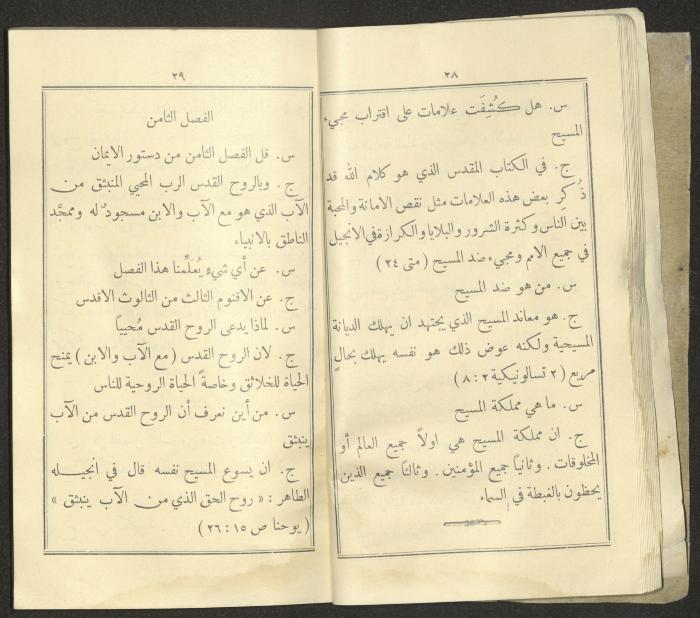 ٢٨
س. هل كُشِفَت علامات على اقتراب مجيء
المسيح
ج. في الكتاب المقدس الذي هو كلام الله قد
ذُكِر بعض هذه العلامات مثل نقص الامانة والمحبة
بين الناس وكثرة الشرور والبلايا والكرازة في الانجيل
في جميع الامم ومجيء ضد المسيح (متى ٢٤)
س. من هو ضد المسيح
ج. هو معاند المسيح الذي يجتهد ان يهلك الديانة
المسيحية ولكنه عوض ذلك هو نفسه يهلك بحالٍ
مريع (٢ تسالونيكية ٢:٨)
س. ما هي مملكة المسيح
ج. ان مملكة المسيح هي اولاً جميع العالم أو
المخلوقات. وثانياً جميع المؤمنين. وثالثاً جميع الذين
يحظون بالغبطة في السماء
٢٩
الفصل الثامن
س. قل الفصل الثامن من دستور الايمان
ج. وبالروح القدس الرب المحيي المنبثق من
الآب الذي هو مع الآب والابن مسجودٌ له وممجَّد
الناطق بالانبياء
س. عن أي شيءٍ يُعَلِّمنا هذا الفصل
ج. عن الاقنوم الثالث من الثالوث الاقدس
س. لماذا يدعى الروح القدس مُحيياً
ج. لان الروح القدس (مع الآب والابن) يمنح
الحياة للخلائق وخاصةً الحياة الروحية للناس
س. من أين نعرف أن الروح القدس من الآب
ينبثق
ج. ان يسوع المسيح نفسه قال في انجيله
الطاهر: «روح الحق الذي من الآب ينبثق»
(يوحنا ص ١٥:٢٦)